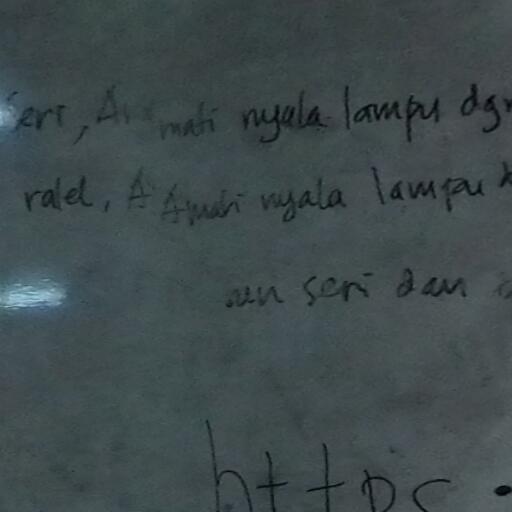 seri, Amati nyala lampu dgn
ralel, Amati nyala lampu
seri dan
https: